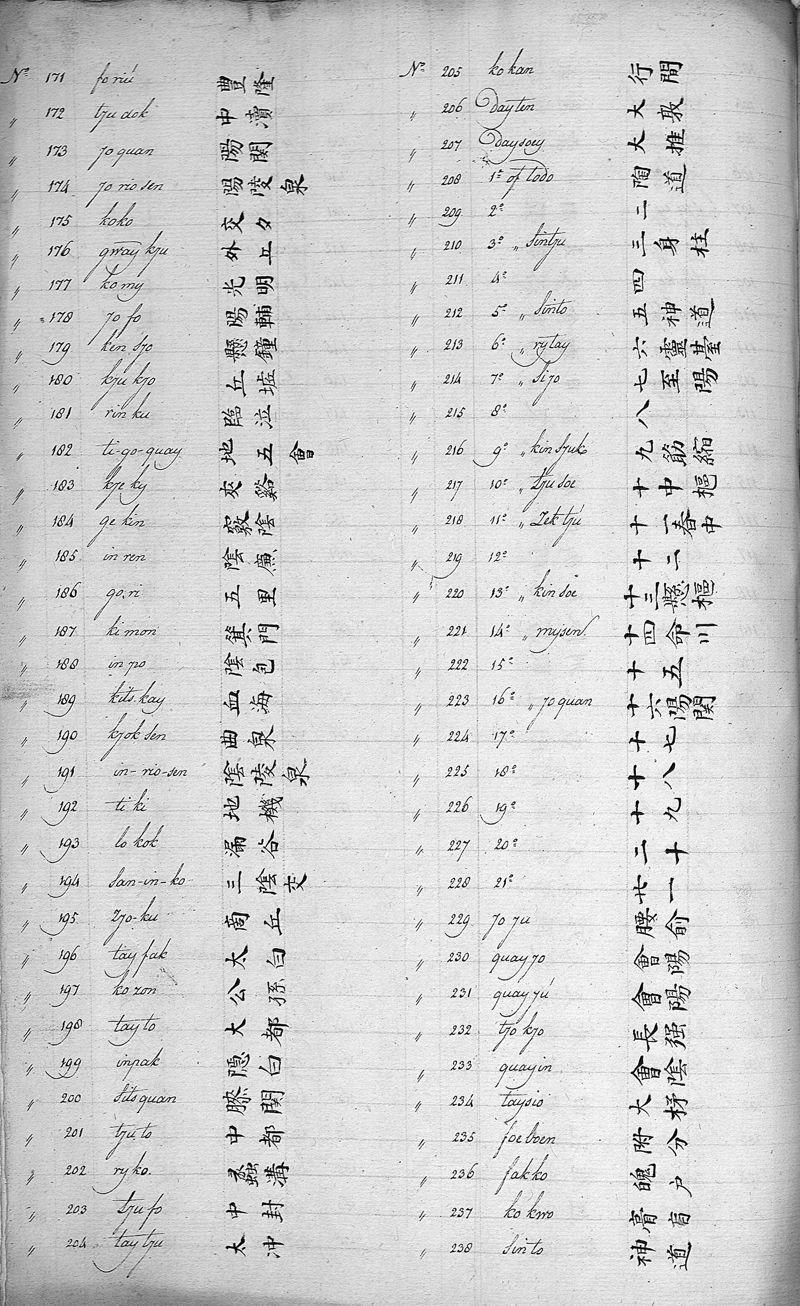 Nº 171 foriú 豊隆
〃 172 tjudok 中瀆
〃 173 jo quan 陽関
〃 174 jo rio sen 陽陵泉
〃 175 koko 交夕
〃 176 gway kju 外丘
〃 177 komy 光明
〃 178 jo fo 陽輔
〃 179 ken sjo 懸鐘
〃 180 kju kjo 丘墟
〃 181 rin ku 臨泣
〃 182 ti-go-quay 地五會
〃 183 kje ky 夾谿
〃 184 ge kin 竅陰
〃 185 in ren 陰廉
〃 186 go.ri 五里
〃 187 ki mon 箕門
〃 188 in po 陰包
〃 189 kits.kay 血海
〃 190 kjok sen 曲泉
〃 191 in-rio-sen 陰陵泉
〃 192 ti ki 地機
〃 193 lo kok 漏谷
〃 194 san-in-ko 三陰交
〃 195 zjo-ku 商丘
〃 196 tay fak 太白
〃 197 ko zon 公孫
〃 198 tay to 大都
〃 199 inpak 隠白
〃 200 sits quan 膝関
〃 201 tju to 中都
〃 202 ry ko. 蠡溝
〃 203 tju fo 中封
〃 204 tay tju 太冲
Nº 205 ko kan 行間
〃 206 Day ten 大敦
〃 207 Day soey 大推
〃 208 1e of Todo 陶道
〃 209 2e 二
〃 210 3e 〃 sintju 三身柱
〃 211 4e 四
〃 212 5e 〃 sinto 五神道
〃 213 6e 〃 rytay 六靈䑓
〃 214 7e 〃 sijo 七至陽
〃 215 8e 八
〃 216 9e 〃 kin sjuk 九筋縮
〃 217 10e 〃 tju soe 十中樞
〃 218 11e 〃 Zek tju 十一春中
〃 219 12e 十二
〃 220 13e 〃 kin soe 十三懸樞
〃 221 14e 〃 mysen 十四命川
〃 222 15e 十五
〃 223 16e 〃 jo quan 十六陽関
〃 224 17e 十七
〃 225 18e 十八
〃 226 19e 十九
〃 227 20e 二十
〃 228 21e 廿一
〃 229 jo ju 腰俞
〃 230 quay jo 會陽
〃 231 quay jú 會陽
〃 232 tjo kjo 長强
〃 233 quayin 會陰
〃 234 taysio 大杼
〃 235 foe boen 附分
〃 236 fak ko 魄户
〃 237 ko kwo 膏肓
〃 238 sinto 神道